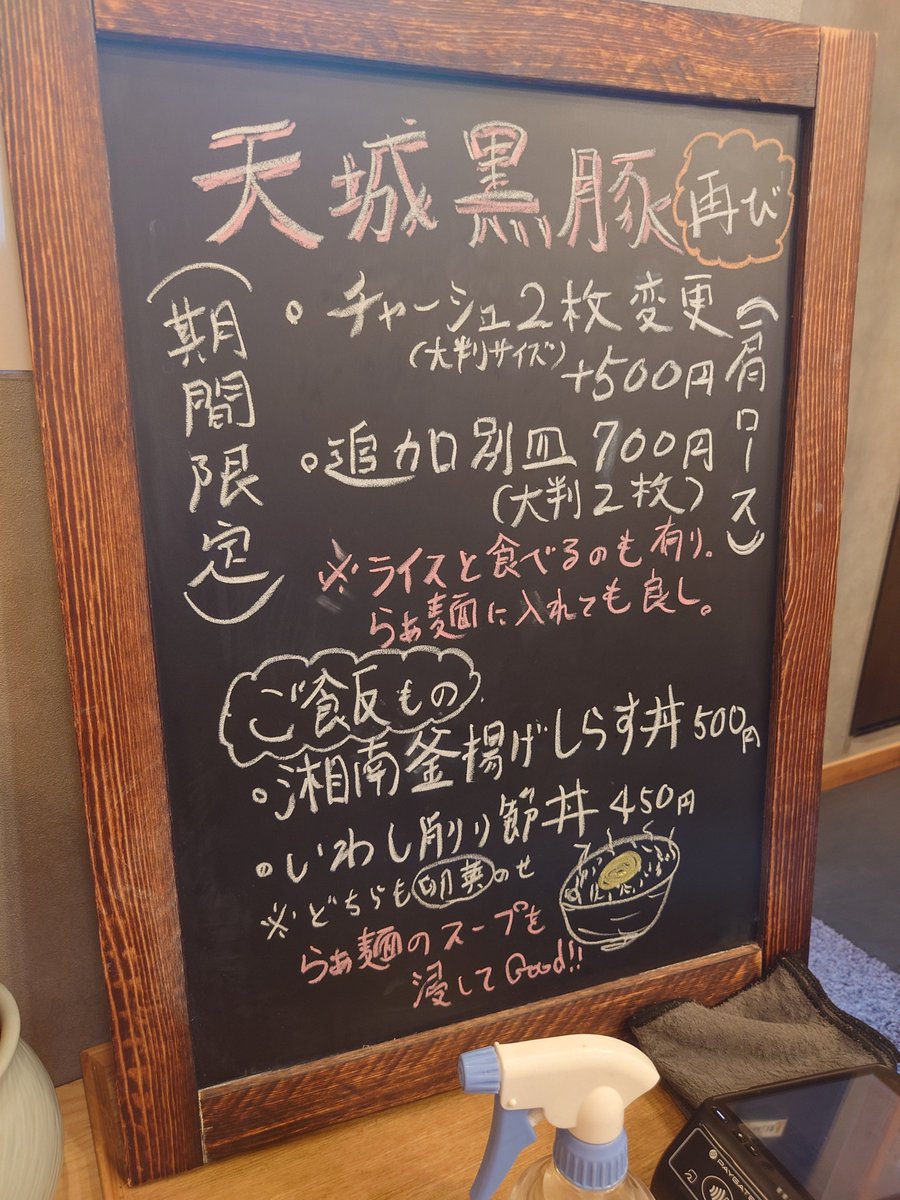 天城黒豚
再び
(期間限定)
(肩ロース)
・チャーシュ2枚変更
(大判サイズ)
+500円
・追加別皿 700円
(大判2枚)
※ライスと食べるのも有り.
らぁ麺に入れても良し。
ご飯もの
・湘南釜揚げしらす丼 500円
・いわし削り節丼 450円
※どちらも卵黄のせ
らぁ麺のスープを
浸してGood!!